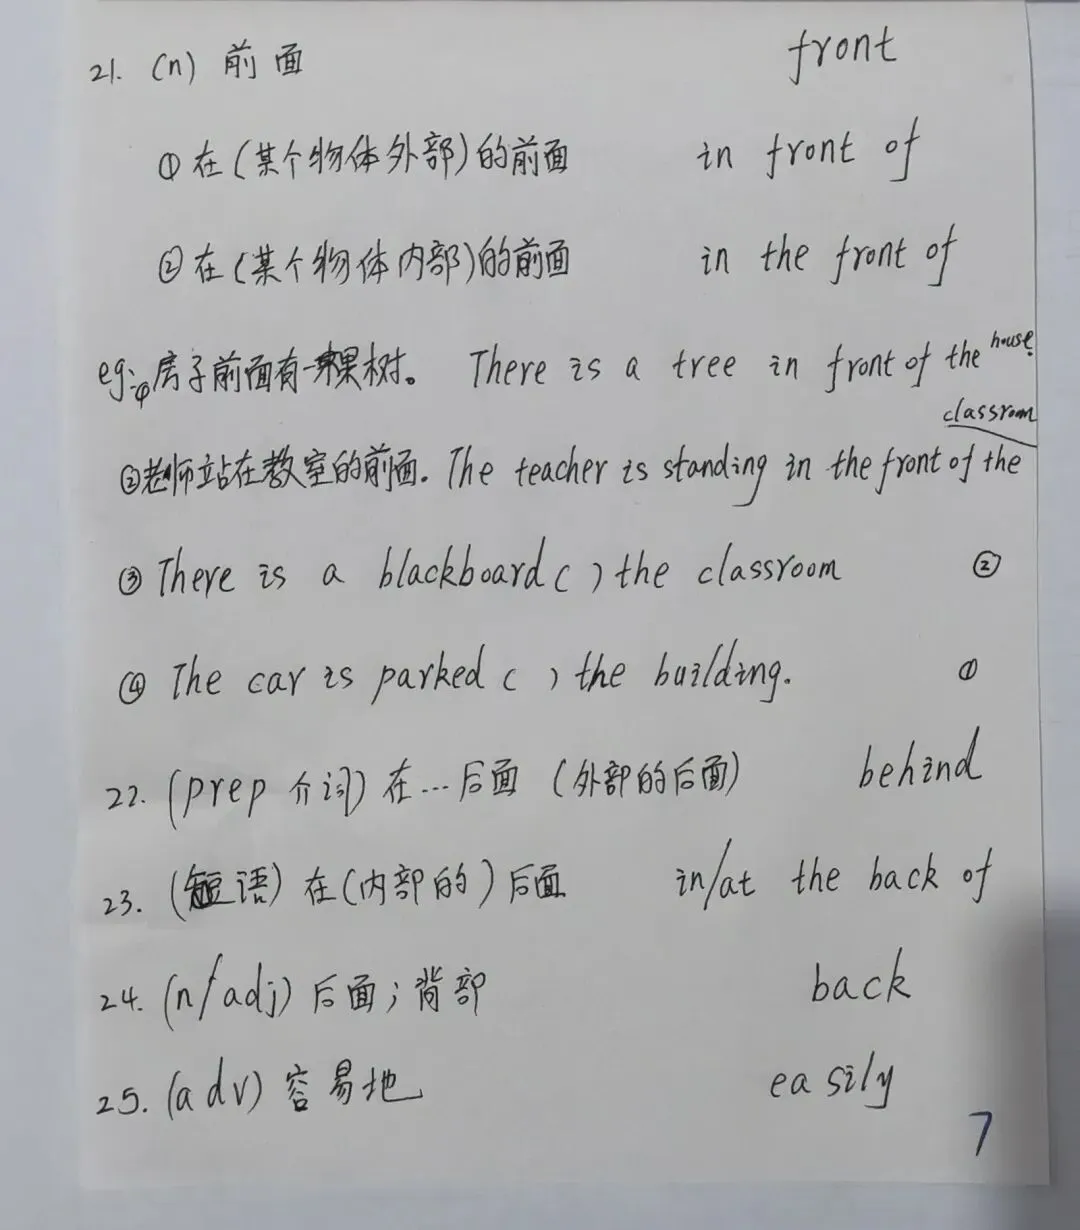 21. (n) 前面 front
①在(某个物体外部)的前面 in front of
②在(某个物体内部)的前面 in the front of
eg:①房子前面有一棵树。 There is a tree in front of the house.
②老师站在教室的前面. The teacher is standing in the front of the classroom
③ There is a blackboard ( ) the classroom ②
④ The car is parked ( ) the building. ①
22. (prep 介词) 在...后面 (外部的后面) behind
23. (短语) 在(内部的)后面 in/at the back of
24. (n/adj) 后面;背部 back
25. (adv) 容易地 easily
7